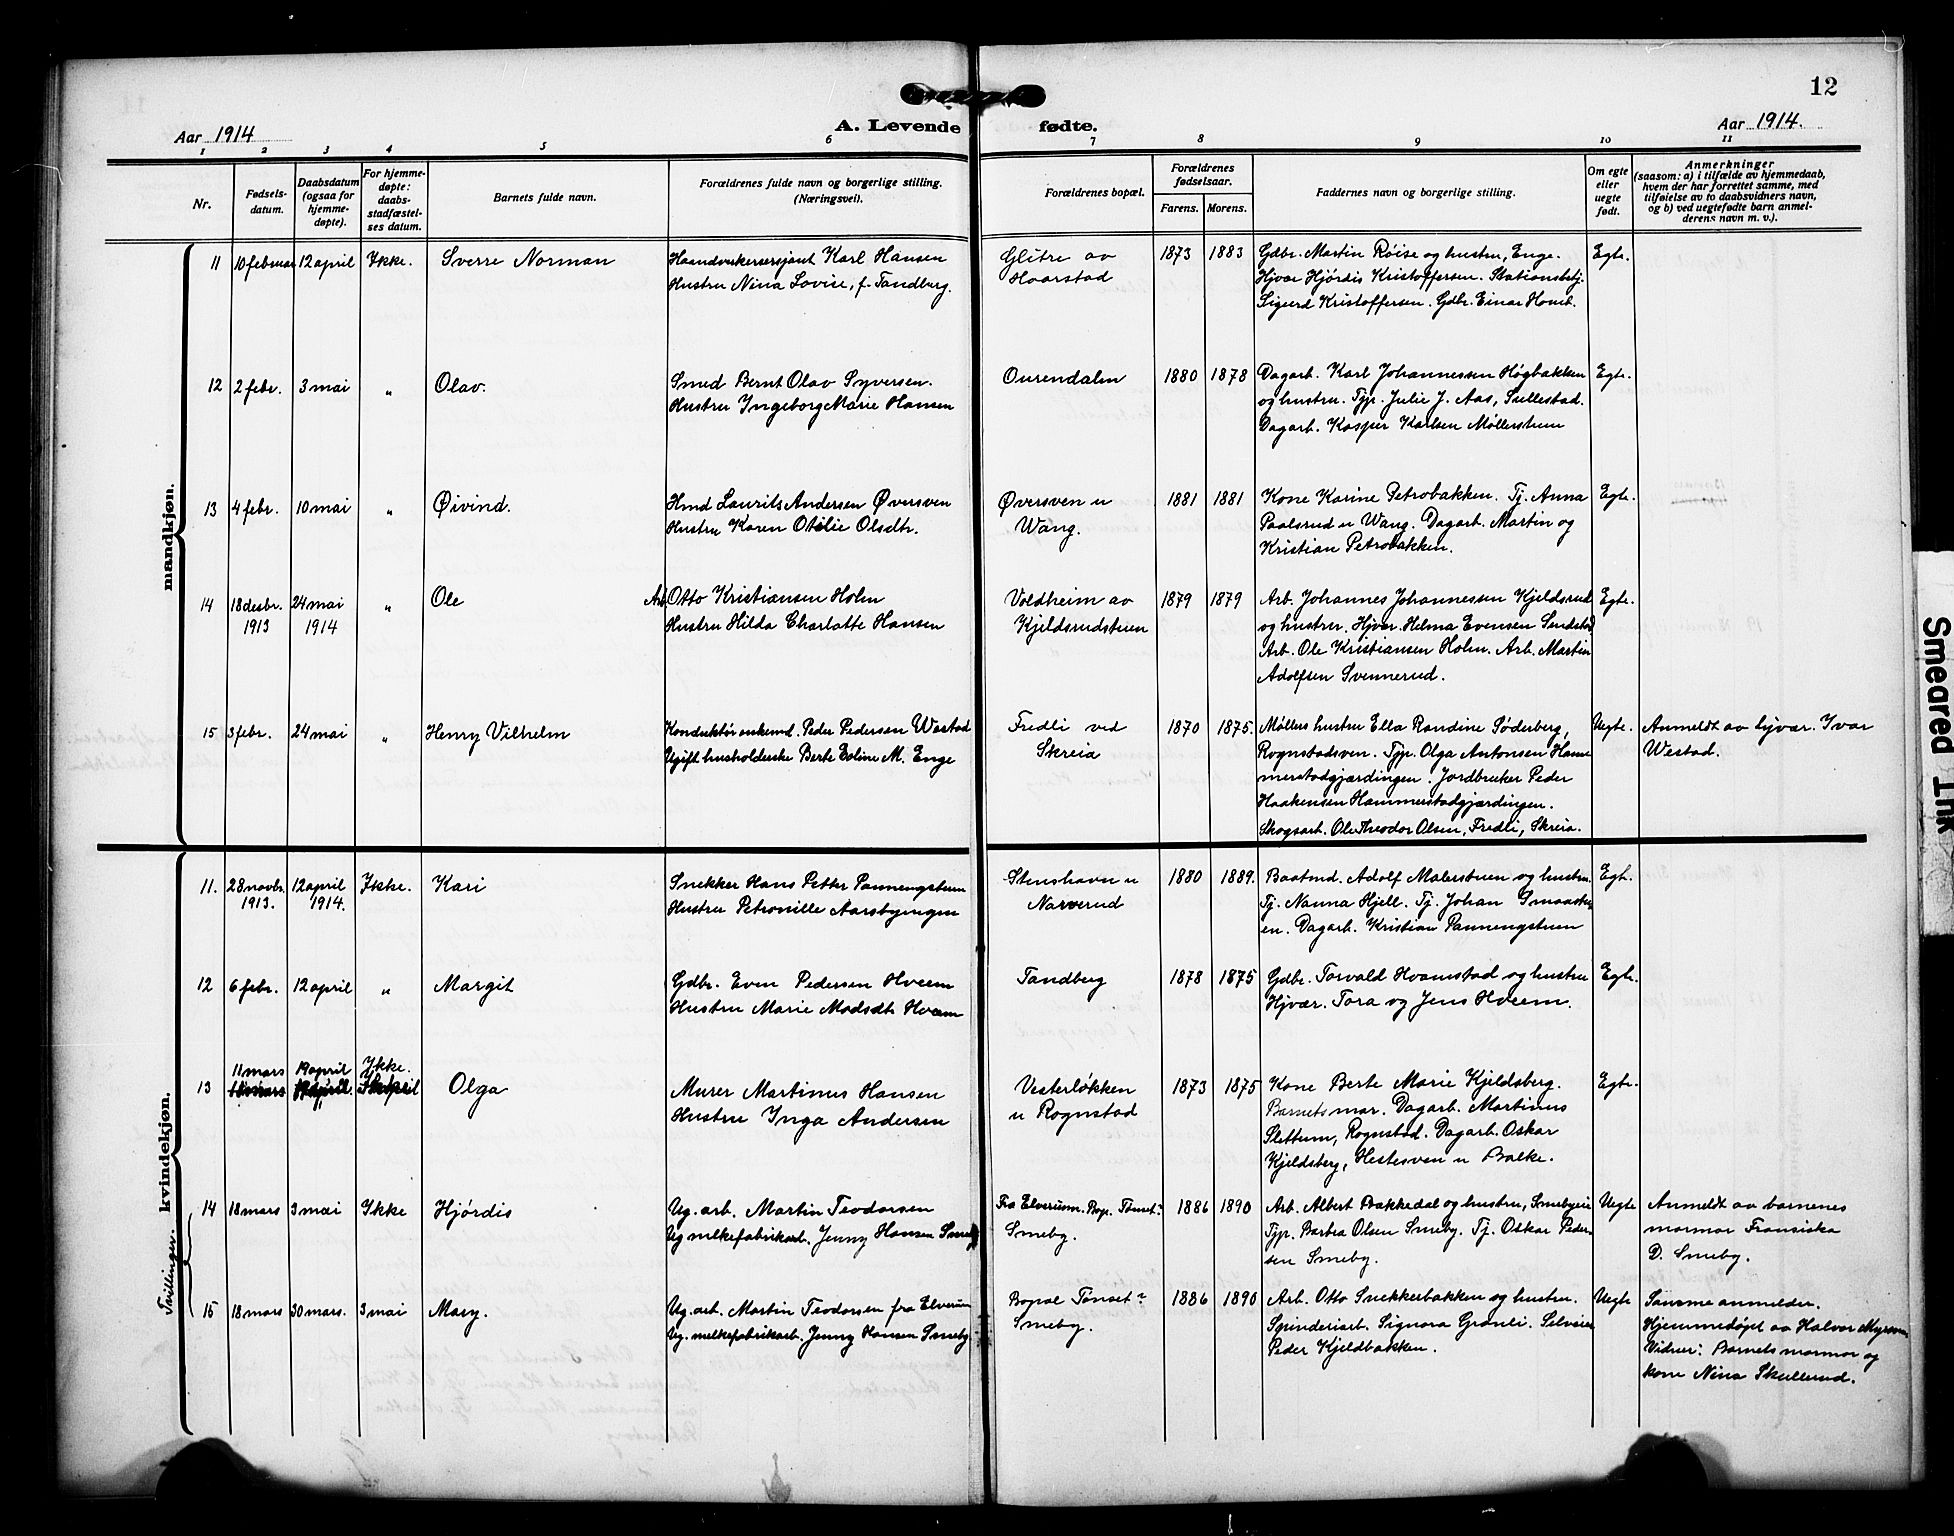 12
Aar 1914
A. Levende fødte.
Aar 1914.
1 2 3 4 5 6 7 8 9 10 11
Nr.
Fødsels-
datum.
Daabsdatum
(ogsaa for
hjemme-
døpte).
For hjemme-
døpte:
daabs-
stadfæstel-
ses datum.
Barnets fulde navn.
Forældrenes fulde navn og borgerlige stilling.
(Næringsvei).
Forældrenes bopæl.
Forældrenes
fødselsaar.
Farens. Morens.
Faddernes navn og borgerlige stilling.
Om egte
eller
uegte
født.
Anmerkninger
(saasom: a) i tilfælde av hjemmedaab,
hvem der har forrettet samme, med
tilføielse av to daabsvidners navn,
og b) ved uegtefødte barn anmel-
derens navn m. v.).
mandkjøn.
11 10 februar 12 april Ikke. Sverre Norman
Haandverkersersjant Karl Hansen
Hustru Nina Lovise, f. Tandberg.
Glitre av
Haarstad
1873 1883
Gdbr. Martin Røise og hustru, Enge.
Hjvar Hjørdis Kristoffersen. Stationsbetj.
Sigurd Kristoffersen. Gdbr. Einar Homb.
Egte.
12 2 febr. 3 mai " Olav.
Smed Bernt Olav Syversen.
Hustru Ingeborg Marie Hansen
Ourendalen
1880 1878
Dagarb. Karl Johannessen Høgbakken
og hustru. Tjp. Julie J. Aas, Sullestad.
Dagarb. Kasper Karlsen Møllerstuen
Egte.
13 4 febr. 10 mai " Øivind.
Hmd Laurits Andersen Øversven
Hustru Karen Otilie Olsdtr.
Øversven u
Wang.
1881 1881
Kone Karine Petrobakken. Tj. Anna
Paalsrud u Wang. Dagarb. Martin og
Kristian Petrobakken.
Egte.
14 18 desbr. 24 mai " Ole
1913 1914
Arb. Otto Kristiansen Holm
Hustru Hilda Charlotte Hansen
Voldheim av
Kjeldsrudstuen
1879 1879
Arb. Johannes Johannessen Kjeldsrud
og hustru. Hjvar. Helma Evensen Sendstad
Arb. Ole Kristiansen Holm. Arb. Martin
Adolfsen Svennerud.
Egte.
15 3 febr. 24 mai " Henry Vilhelm
Konduktør enkemd. Peder Pedersen Westad
Ugift husholderske Berte Eoline M. Enge
Fredli ved
Skreia
1870 1875.
Møllers hustru Ella Randine Søderberg,
Rognstadsven. Tjp. Olga Antonsen Ham-
merstadgjærdingen. Jordbruker Peder
Haakensen Hammerstadgjærdingen.
Skogsarb. Ole Theodor Olsen, Fredli, Skreia.
Uegte.
Anmeldt av lysvar. Ivar
Westad.
kvindekjøn.
11. 28 novbr. 12 april Ikke. Kari
1913. 1914.
Snekker Hans Petter Pannengstuen
Hustru Petronille Aarsbyengen
Stenshavn u
Narverud
1880 1889.
Baatmd. Adolf Malerstuen og hustru.
Tj. Nanna Hjell. Tj. Johan Smaastu-
en. Dagarb. Kristian Pannengstuen
Egt.
12 6 febr. 12 april " Margit
Gdbr. Even Pedersen Hveem
Hustru Marie Madsdtr Hveem
Tandberg
1878 1875
Gdbr. Torvald Hvamstad og hustru
Hjvær. Tora og Jens Hveem.
Egte.
11 mars 19 april Ikke.
13 Olga
Murer Martinus Hansen
Hustru Inga Andersen
Vesterløkken
u Rognstad
1873 1875
Kone Berte Marie Kjeldsberg.
Barnets mor. Dagarb. Martinus
Slettum, Rognstad. Dagarb. Oskar
Kjeldsberg, Hestesven u Balke.
Egte.
Tvillinger.
14 18 mars 3 mai Ikke Hjørdis
Ug. arb. Martin Teodorsen
Ug melkefabrikarb. Jenny Hansen Smeby
Fra Elverum. Bop. Tønset
Smeby.
1886 1890
Arb. Albert Bakkedal og hustru, Smebyeie
Tjp. Barbra Olsen Smeby. Tj. Oskar Peder-
sen Smeby.
Uegte
Anmeldt av barnenes
mormor Fransiska
D. Smeby.
15 18 mars 30 mars. 3 mai Mary.
Ug. arb. Martin Teodorsen fra Elverum
Ug. melkefabrikarb. Jenny Hansen Smeby
Bopæl Tønset
Smeby.
1886 1890
Arb. Otto Snekkerbakken og hustru.
Spinderiarb. Signora Grønli. Selveier
Peder Kjeldbakken.
Uegte
Samme anmelder.
Hjemmedøpt av Halvor Myrsven
Vidner: Barnets mormor og
kone Nina Skullerud.
Smeared Ink